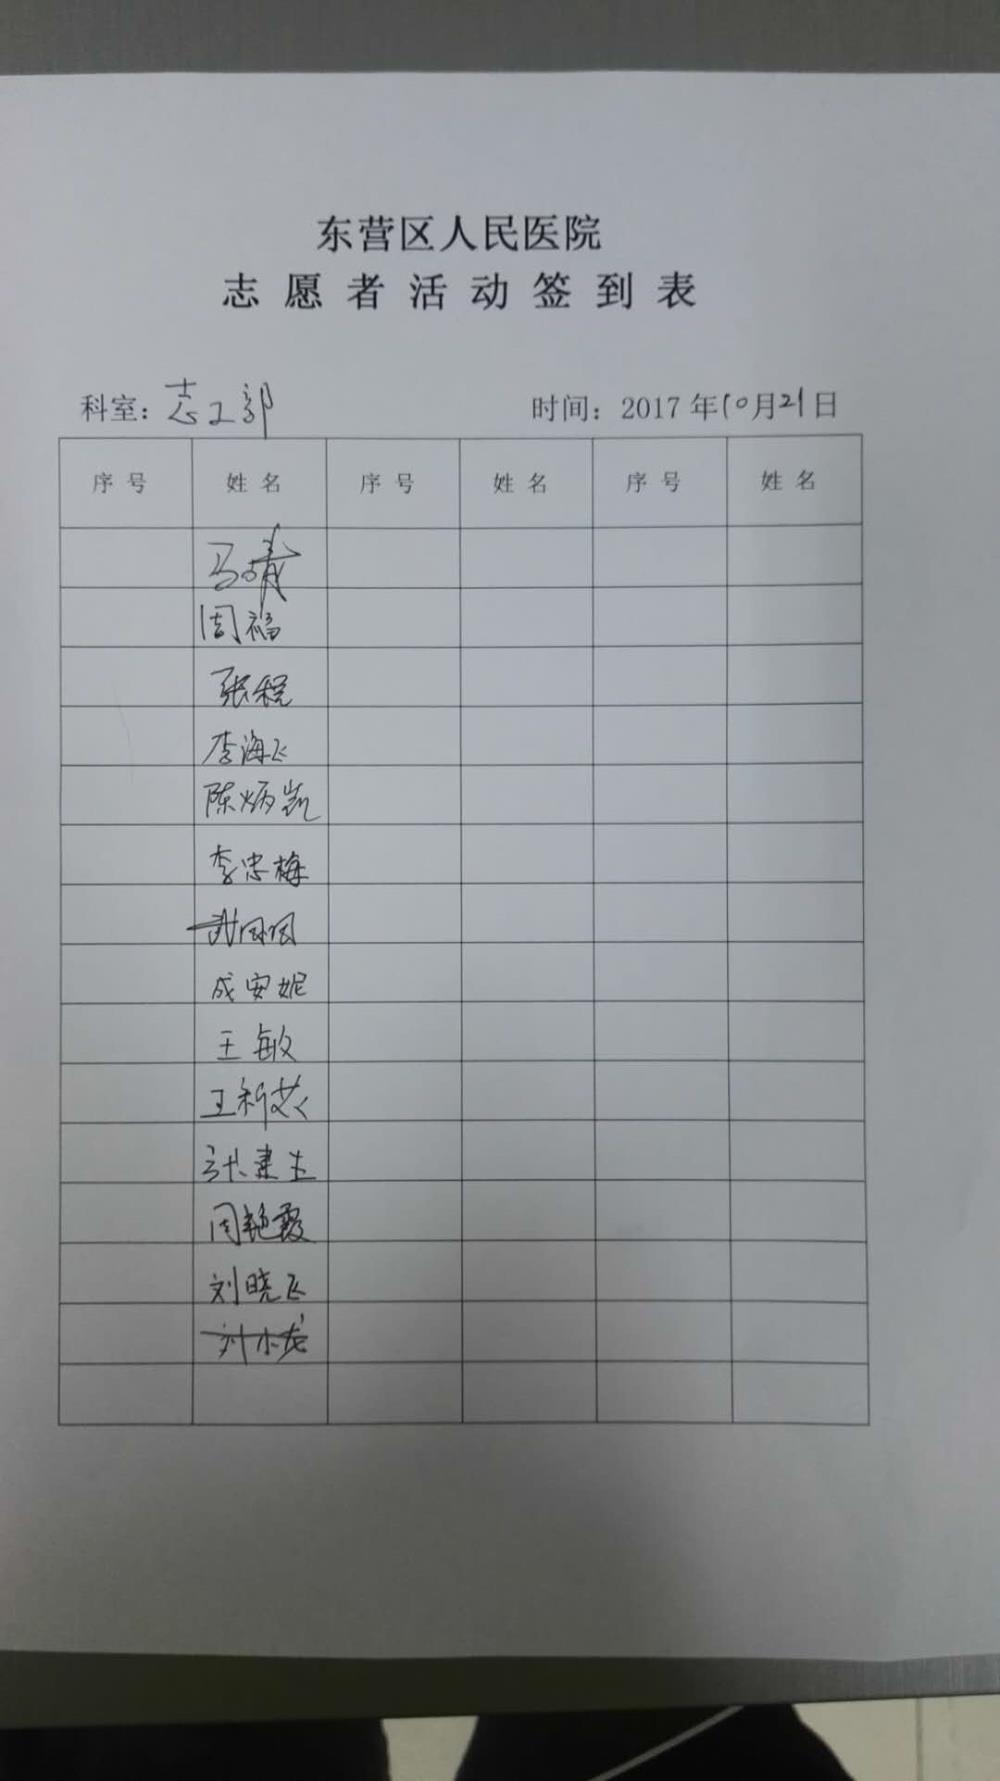 东营区人民医院
志愿者活动签到表
科室：志工部 时间：2017年10月21日
序号 姓名 序号 姓名 序号 姓名
马婧
周福
张程
李海飞
陈炳凯
李忠梅
成安妮
王敏
王新芝
张建生
周艳霞
刘晓飞
刘小龙